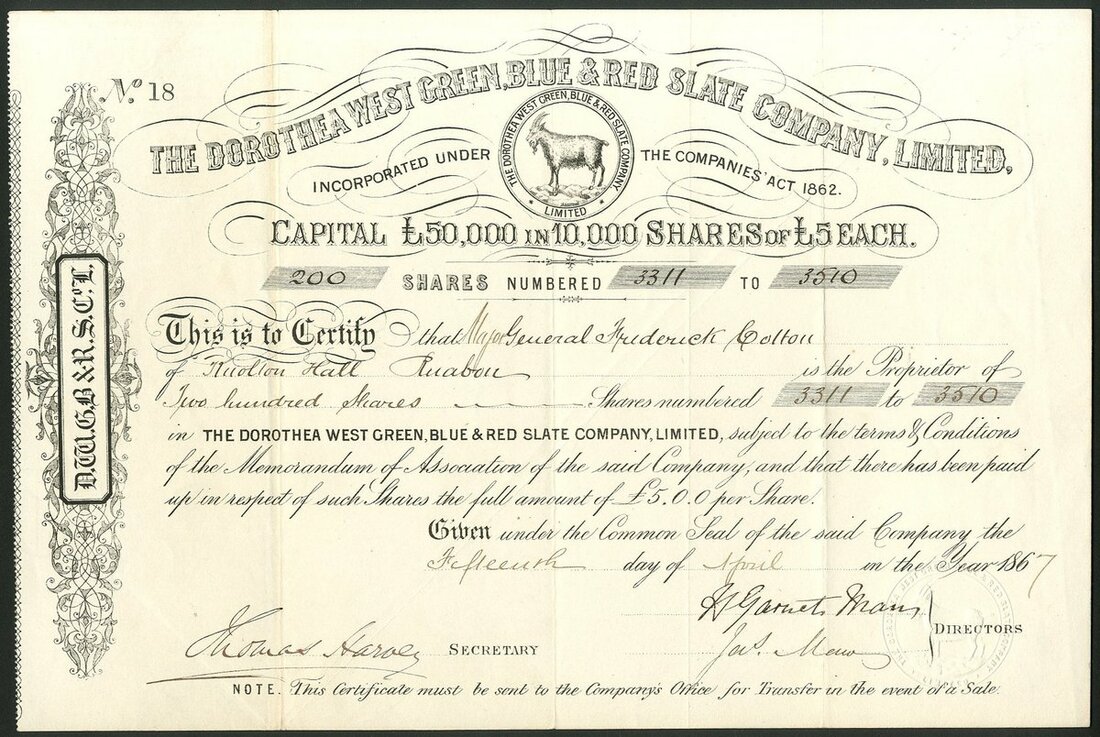 No. 18
THE DOROTHEA WEST GREEN, BLUE & RED SLATE COMPANY, LIMITED,
INCORPORATED UNDER THE COMPANIES' ACT 1862.
THE DOROTHEA WEST GREEN, BLUE & RED SLATE COMPANY
LIMITED
CAPITAL £50,000 IN 10,000 SHARES OF £5 EACH.
200 SHARES NUMBERED 3311 TO 3510
This is to Certify that Major General Frederick Cotton
of Knolton Hall Ruabon is the Proprietor of
Two hundred Shares Shares numbered 3311 to 3510
in THE DOROTHEA WEST GREEN, BLUE & RED SLATE COMPANY, LIMITED, subject to the terms & Conditions
of the Memorandum of Association of the said Company, and that there has been paid
up in respect of such Shares the full amount of £5.0.0 per Share.
Given under the Common Seal of the said Company the
Fifteenth day of April in the Year 1867
H Garnet Man
Jas. Mew
DIRECTORS
Thomas Harvey SECRETARY
NOTE. This Certificate must be sent to the Company's Office for Transfer in the event of a Sale.
D.W.G.B & R.S. Co. L.